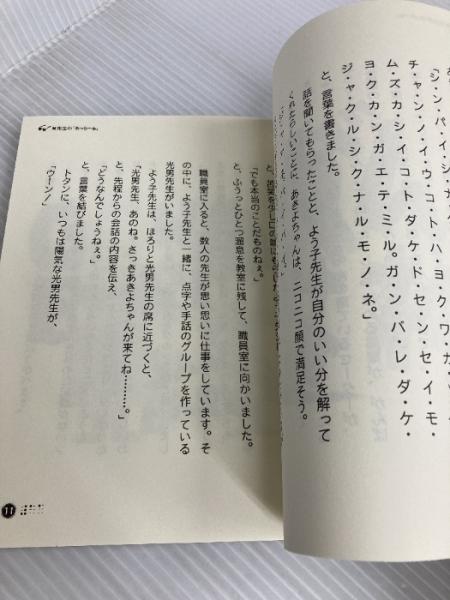 シ・ン・パ・イ・シ・ナ
チ・ャ・ン・ノ・イ・ウ・コ・ト・ハ・ヨ・ク・ワ・カ
ム・ズ・カ・シ・イ・コ・ト・ダ・ケ・ド・セ・ン・セ・イ・モ・
ヨ・ク・カ・ン・ガ・エ・テ・ミ・ル。ガ・ン・バ・レ・ダ・ケ・
ジ・ャ・ク・ル・シ・ク・ナ・ル・モ・ノ・ネ。」
と、言葉を書きました。
話を聞いてもらったことと、よう子先生が自分のいい分を解って
くれたらしいことに、あきよちゃんは、ニコニコ顔で満足そう。
と、苦笑を少し口の端に
「でも本当のことだものねぇ。」
と、ふうっとひとつ溜息を教室に残して、職員室に向かいました。
職員室に入ると、数人の先生が思い思いに仕事をしています。そ
の中に、よう子先生と一緒に、点字や手話のグループを作っている
光男先生がいました。
よう子先生は、ほろりと光男先生の席に近づくと、
「光男先生、あのね。さっきあきよちゃんが来てね………。」
と、先程からの会話の内容を伝え、
「どうなんでしょうねぇ。」
と、言葉を結びました。
トタンに、いつもは陽気な光男先生が、
「ウーン！」
11